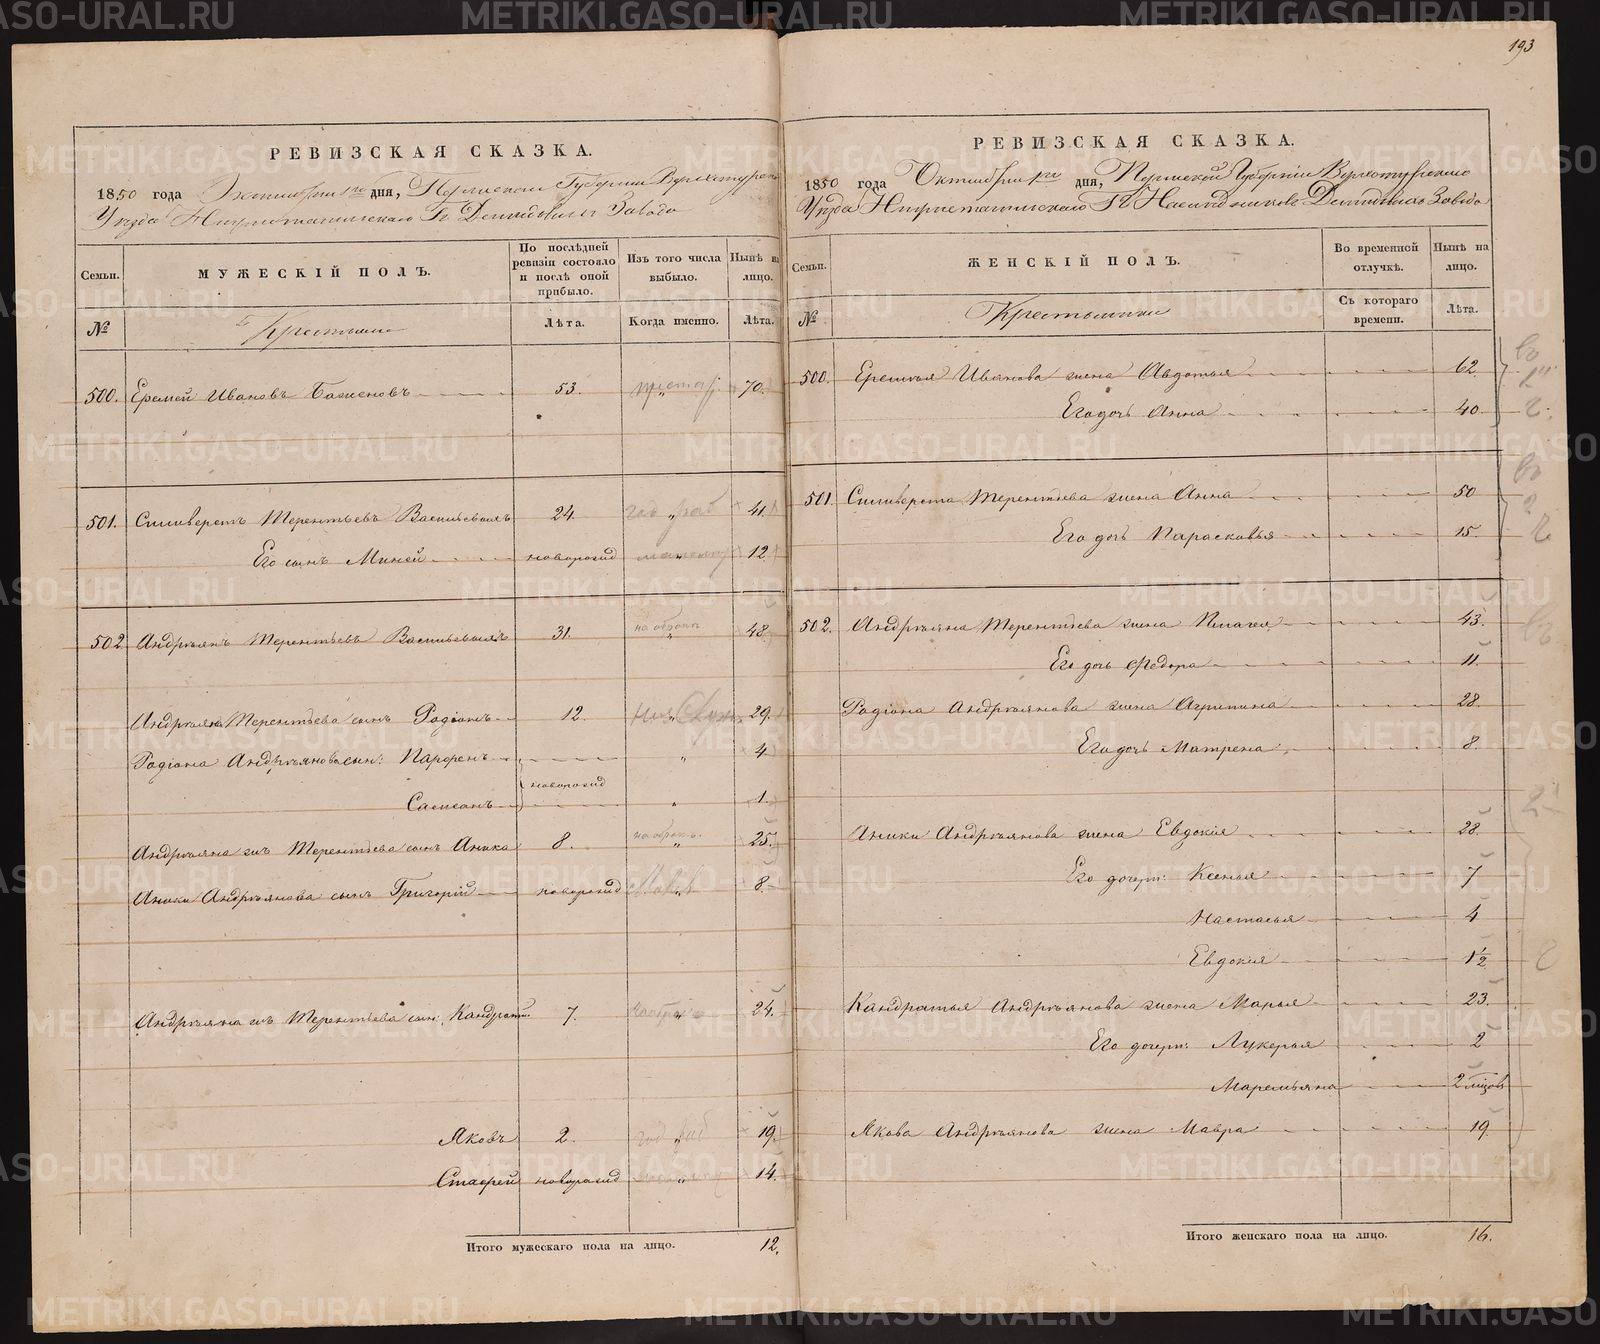 193
РЕВИЗСКАЯ СКАЗКА.
1850 года Октября 1го дня, Пермской Губернии Верхотурскаго
Уѣзда Нижнетагильскаго Гг. Демидовыхъ Завода
Семьи. МУЖЕСКІЙ ПОЛЪ. По послѣдней ревизіи состояло и послѣ оной прибыло. Изъ того числа выбыло. Нынѣ на лицо.
№ Крестьяне Лѣта. Когда именно. Лѣта.
500. Еремей Ивановъ Баженовъ 53. престар. 70.
501. Силиверстъ Терентьевъ Васильевыхъ 24. год. раб 41.
Его сынъ Миней новорожд 12
502 Андреянъ Терентьевъ Васильевыхъ 31. на оброкѣ 48.
Андреяна Терентьева сынъ Радіонъ 12. 29.
Радіона Андреянова сын: Парфенъ " 4
новорожд
Самсонъ " 1.
Андреяна жъ Терентьева сынъ Аника 8. на оброк. 25.
Аники Андреянова сынъ Григорій новорожд " 8.
Андреяна жъ Терентьева сын: Кандратій 7. " 24.
Яковъ 2. год раб 19.
Стафей новорожд " 14.
Итого мужескаго пола на лицо. 12.
РЕВИЗСКАЯ СКАЗКА.
1850 года Октября 1го дня, Пермской Губерніи Верхотурскаго
Уѣзда Нижнетагильскаго Гг. Наслѣдниковъ Демидовыхъ Завода
Семьи. ЖЕНСКІЙ ПОЛЪ. Во временной отлучкѣ. Нынѣ на лицо.
№ Крестьянки Съ котораго времени. Лѣта.
500. Еремея Иванова жена Авдотья 62.
Его дочь Анна 40.
501. Силиверста Терентьева жена Анна 50
Его дочь Парасковья 15.
502. Андреяна Терентьева жена Пилагея 43.
Его дочь Федора 11.
Радіона Андреянова жена Агрипина 28.
Его дочь Матрена 8.
Аники Андреянова жена Евдокія 28.
Его дочери: Ксенья 7
Настасья 4
Евдокія 1½
Кандратья Андреянова жена Марья 23.
Его дочери: Лукерья 2
Маремьяна 2 мѣсяц
Якова Андреянова жена Мавра 19.
Итого женскаго пола на лицо. 16.
METRIKI.GASO-URAL.RU